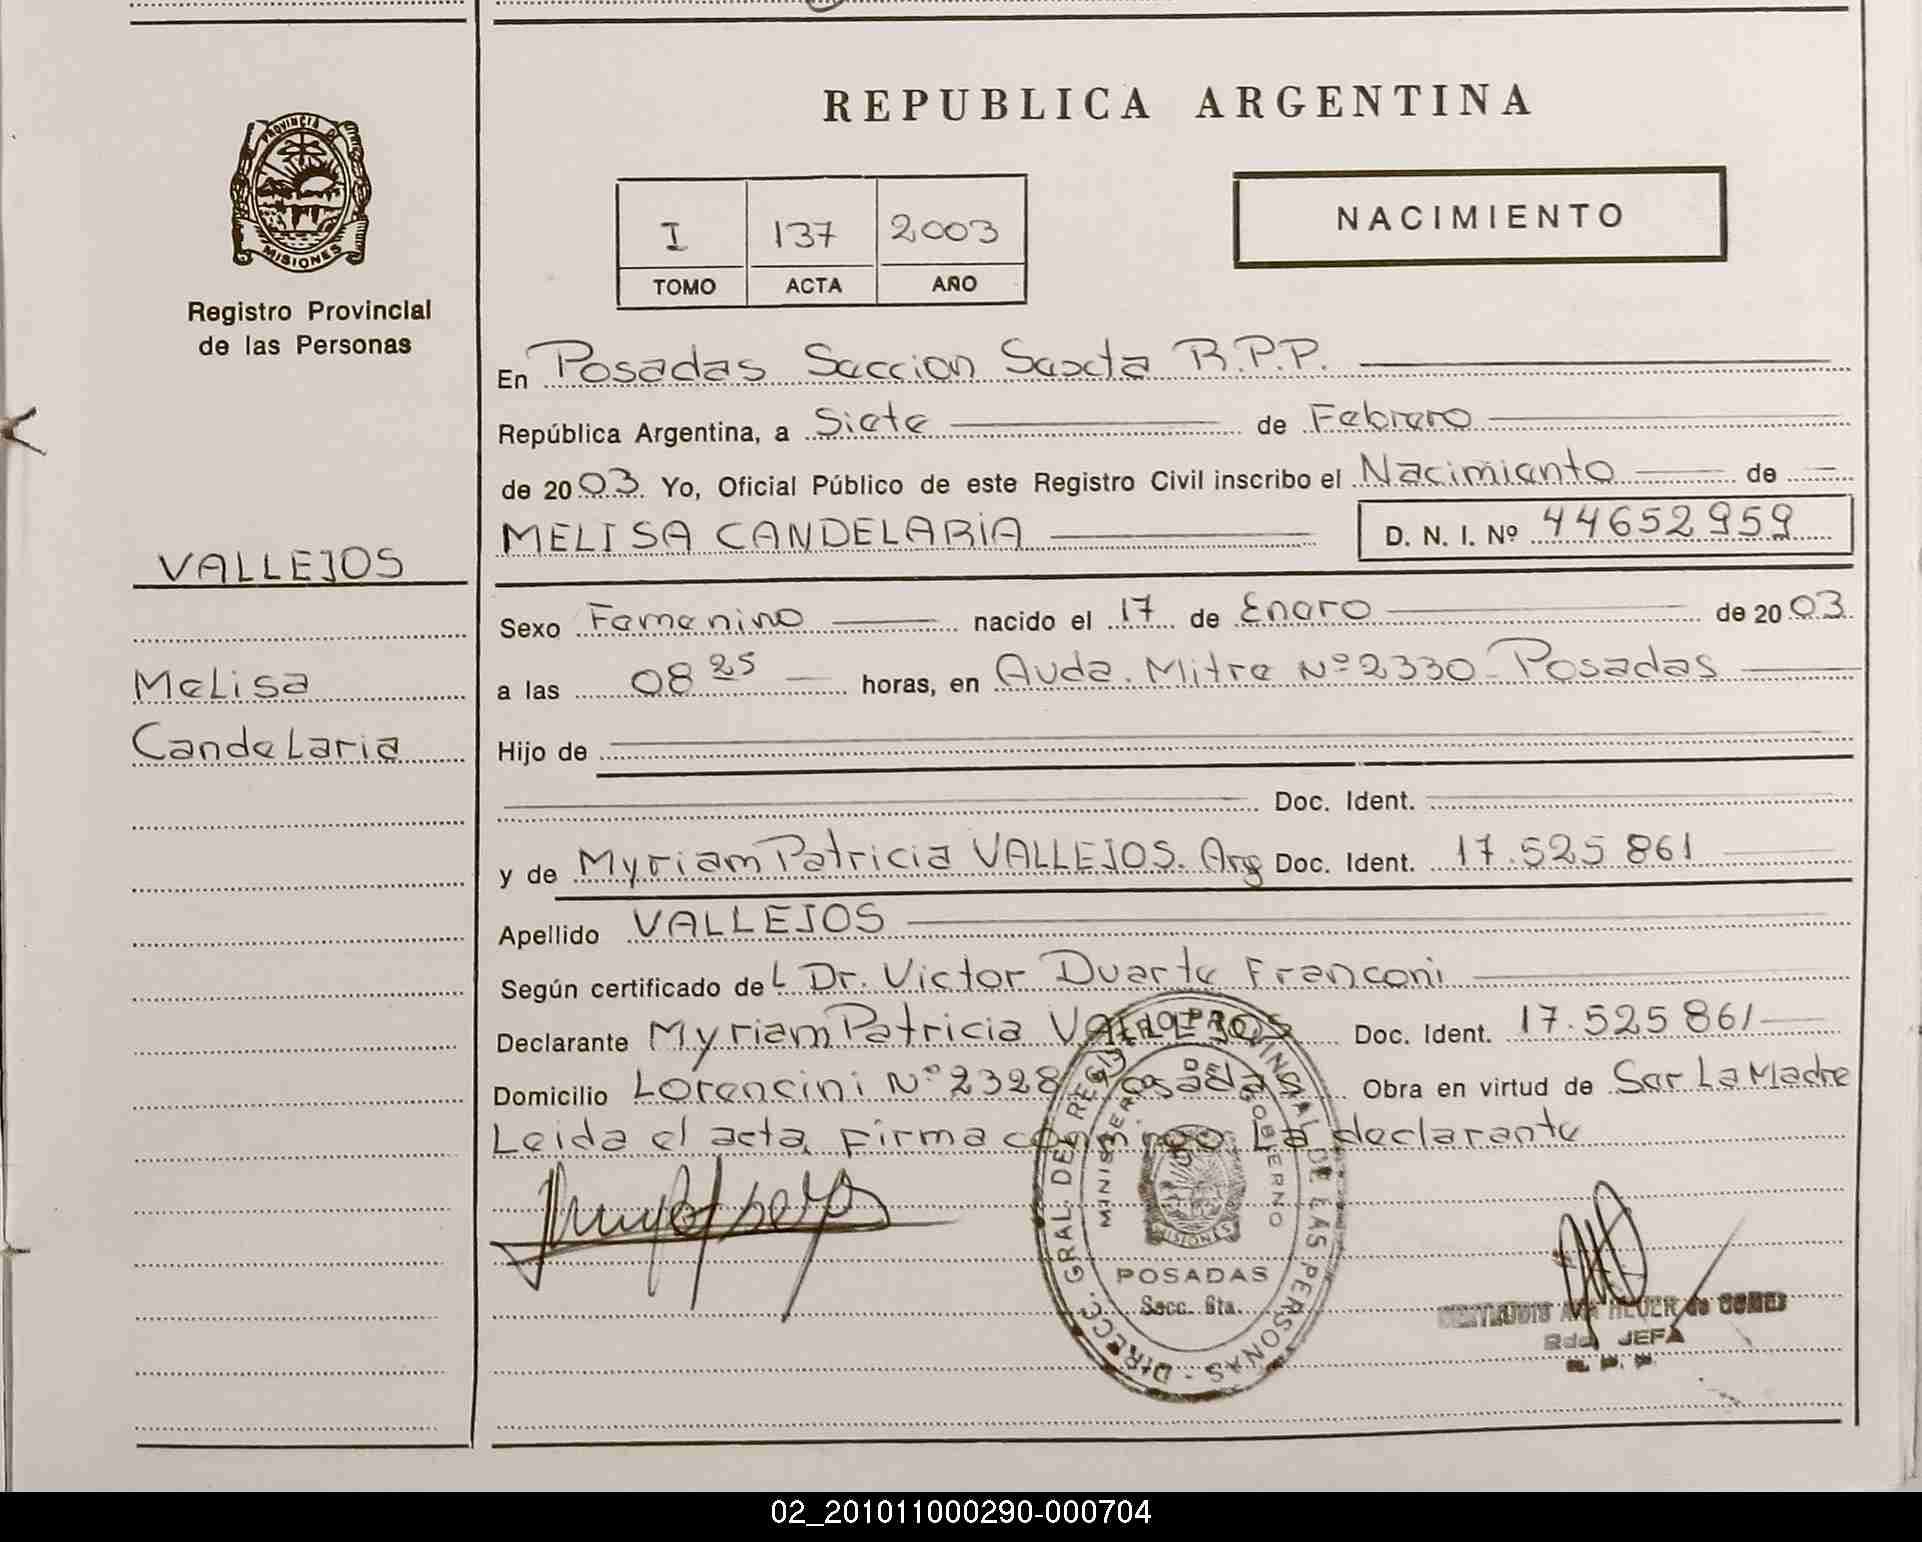 REPUBLICA ARGENTINA
PROVINCIA DE
MISIONES
Registro Provincial
de las Personas
I 137 2003
TOMO ACTA AÑO
NACIMIENTO
En Posadas Seccion Sexta R.P.P.
República Argentina, a Siete de Febrero
de 2003. Yo, Oficial Público de este Registro Civil inscribo el Nacimiento de
MELISA CANDELARIA D. N. I. Nº 44652959
VALLEJOS
Melisa
Candelaria
Sexo Femenino nacido el 17 de Enero de 2003
a las 08 25 horas, en Avda. Mitre Nº 2330 Posadas
Hijo de
Doc. Ident.
y de Myriam Patricia VALLEJOS. Arg Doc. Ident. 17.525 861
Apellido VALLEJOS
Según certificado del Dr. Victor Duarte Franconi
Declarante Myriam Patricia VALLEJOS Doc. Ident. 17.525 861
Domicilio Lorencini Nº 2328 Posadas Obra en virtud de Ser La Madre
Leida el acta, firma conmigo La declarante
DIRECC. GRAL. DEL REGISTRO PROVINCIAL DE LAS PERSONAS -
MINISTERIO DE GOBIERNO
MISIONES
POSADAS
Secc. 6ta.
ANA de GOMES
JEFA
R. P. P.
02_201011000290-000704